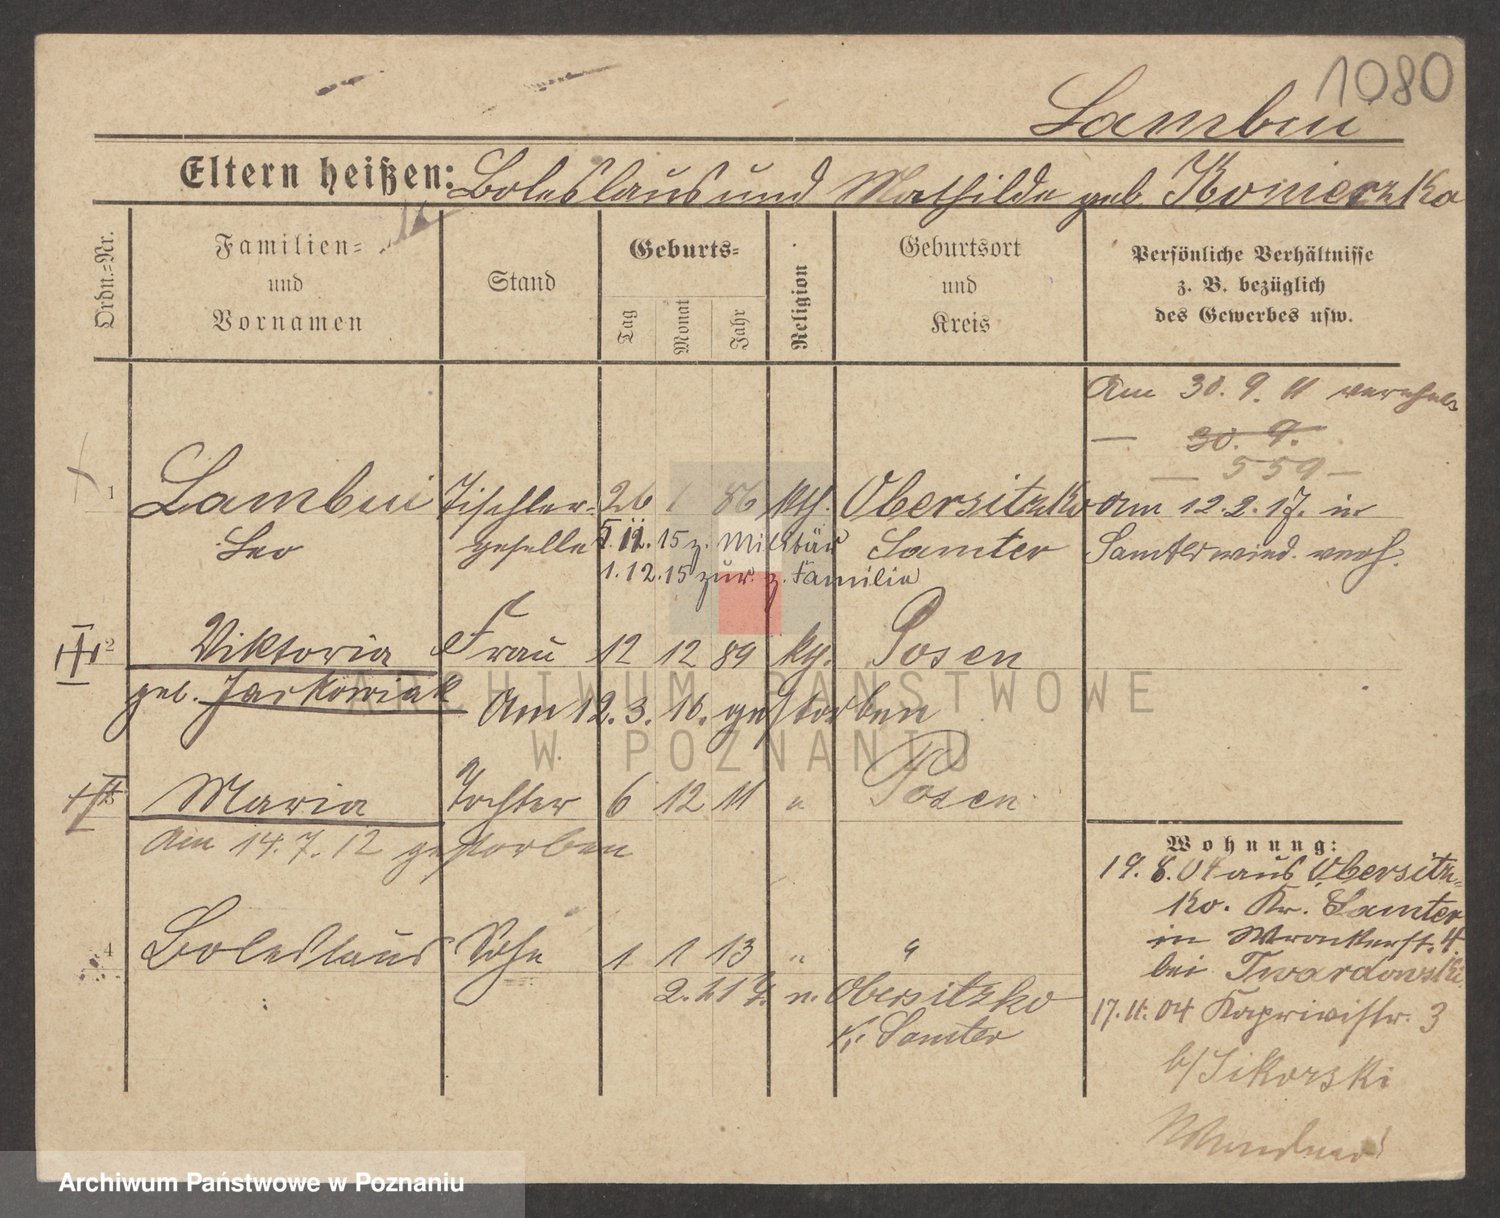 1080
Lambui
Eltern heißen: Boleslaus und Mathilde geb. Konieczka
Ordn.=Nr.
Familien=
und
Vornamen
Stand
Geburts=
Tag
Monat
Jahr
Religion
Geburtsort
und
Kreis
Persönliche Verhältnisse
z. B. bezüglich
des Gewerbes usw.
Am 30. 9. 11
— 30. 9.
— 559 —
1 Lambui Tischler- 26 1 86 kth. Obersitzko am 12.2.17. in
Leo geselle Samter Samter wied. verh.
11.15 z. Militär
1.12.15 zur. z. Familie
2 Viktoria Frau 12 12 89 Posen
geb. Jaskowiak
Am 12.3.16. gestorben
3 Maria Tochter 6 12 11 " Posen
Am 14.7.12 gestorben
4 Boleslaus Sohn 1 1 13 " "
n. Obersitzko
Kr. Samter
Wohnung:
19.8.04 aus Obersitz-
ko. Kr. Samter
in Wronkerstr. 4
bei Twardowski
17.11.04 Kaprivistr. 3
b/Sikorski
ARCHIWUM PAŃSTWOWE
W POZNANIU
Archiwum Państwowe w Poznaniu